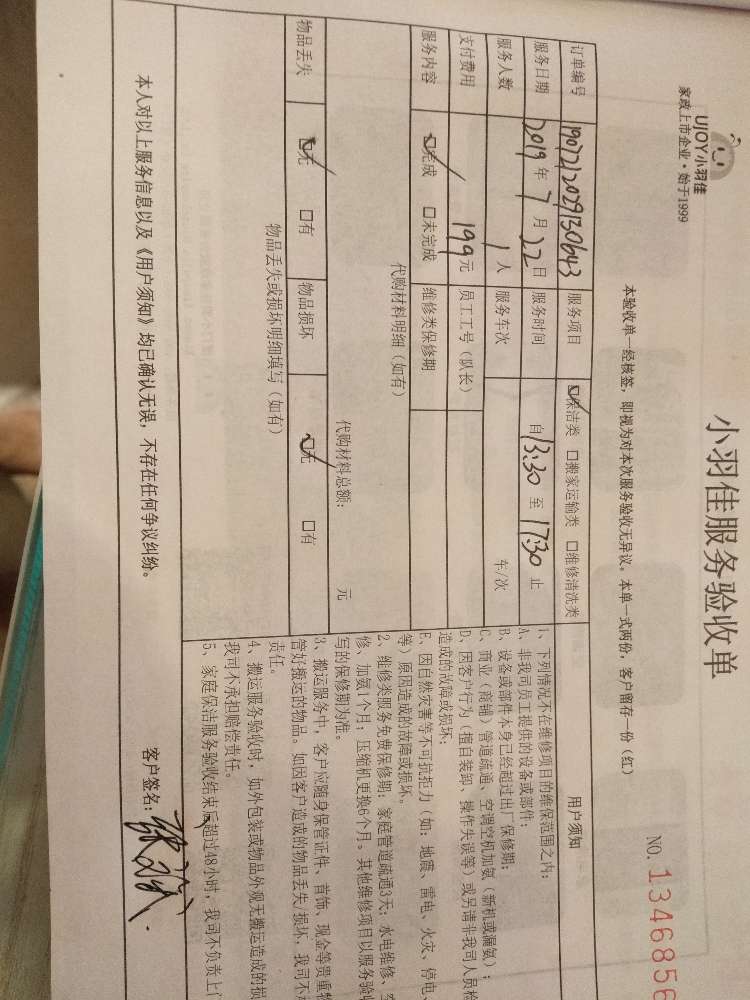 UJOY小羽佳
家政上市企业·始于1999
小羽佳服务验收单
NO. 1346856
本验收单一经核签，即视为对本次服务验收无异议。本单一式两份，客户留存一份（红）
订单编号 1907212029130643 服务项目 ☑保洁类 □搬家运输类 □维修清洗类
服务日期 2019年7月22日 服务时间 自13:30至17:30止
服务人数 1人 服务车次 车/次
支付费用 199元 员工工号（队长）
服务内容 ☑完成 □未完成 维修类保修期
代购材料明细（如有）
代购材料总额： 元
物品丢失 ☑无 □有 物品损坏 ☑无 □有
物品丢失或损坏明细填写（如有）
用户须知
1、下列情况不在维修项目的维保范围之内：
A、非我司员工提供的设备或部件；
B、设备或部件本身已经超过出厂保修期；
C、商业（商铺）管道疏通、空调空机加氨（新机或漏氨）；
D、因客户行为（擅自装卸、操作失误等）或另请非我司人员检
造成的故障或损坏；
E、因自然灾害等不可抗拒力（如：地震、雷电、火灾、停电、
等）原因造成的故障或损坏。
2、维修类服务免费保修期：家庭管道疏通3天；水电维修、空
修、加氨1个月，压缩机更换6个月。其他维修项目以服务验收
写的保修期为准。
3、搬运服务中，客户应随身保管证件、首饰、现金等贵重物
管好搬运的物品。如因客户造成的物品丢失/损坏，我司不承
责任。
4、搬运服务验收时，如外包装或物品外观无搬运造成的损
我司不承担赔偿责任。
5、家庭保洁服务验收结束后超过48小时，我司不负责上门
本人对以上服务信息以及《用户须知》均已确认无误，不存在任何争议纠纷。
客户签名：